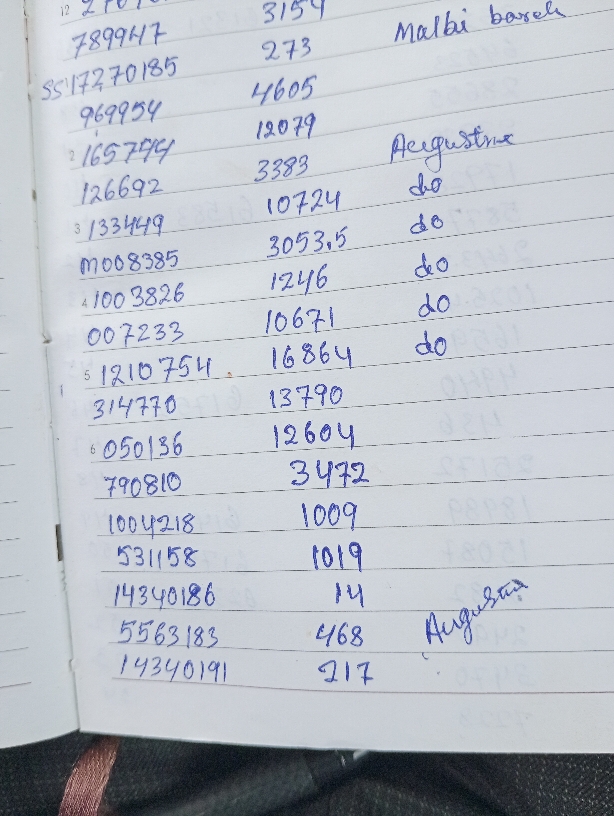 12
789947 3154 Malbi bareh
SS17270185 273
969954 4605
2 165744 12079
126692 3383 Augustine
3 133449 10724 do
M008385 3053.5 do
4 1003826 1246 do
007233 10671 do
5 1210754 16864 do
314770 13790
6 050136 12604
790810 3472
1004218 1009
531158 1019
14340186 14
5563183 468 Augustine
14340191 217